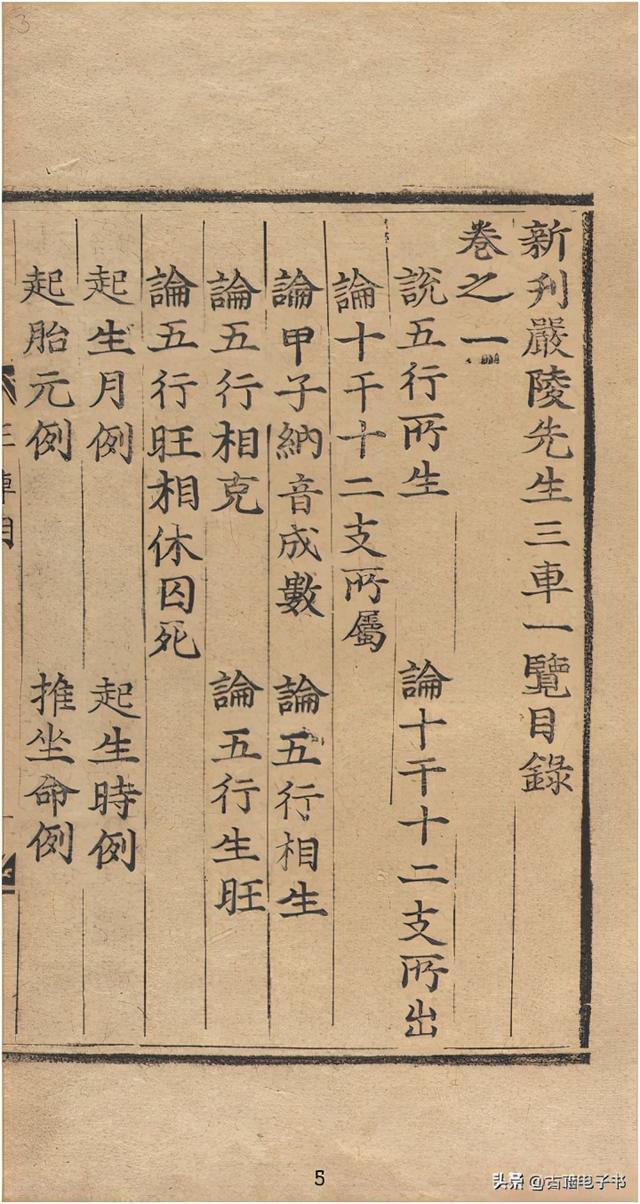 新刋嚴陵先生三車一覽目錄
卷之一
說五行所生 論十干十二支所出
論十干十二支所屬
論甲子納音成數 論五行相生
論五行相克 論五行生旺
論五行旺相休囚死
起生月例 起生時例
起胎元例 推坐命例
5
头条 @古籍电子书
3